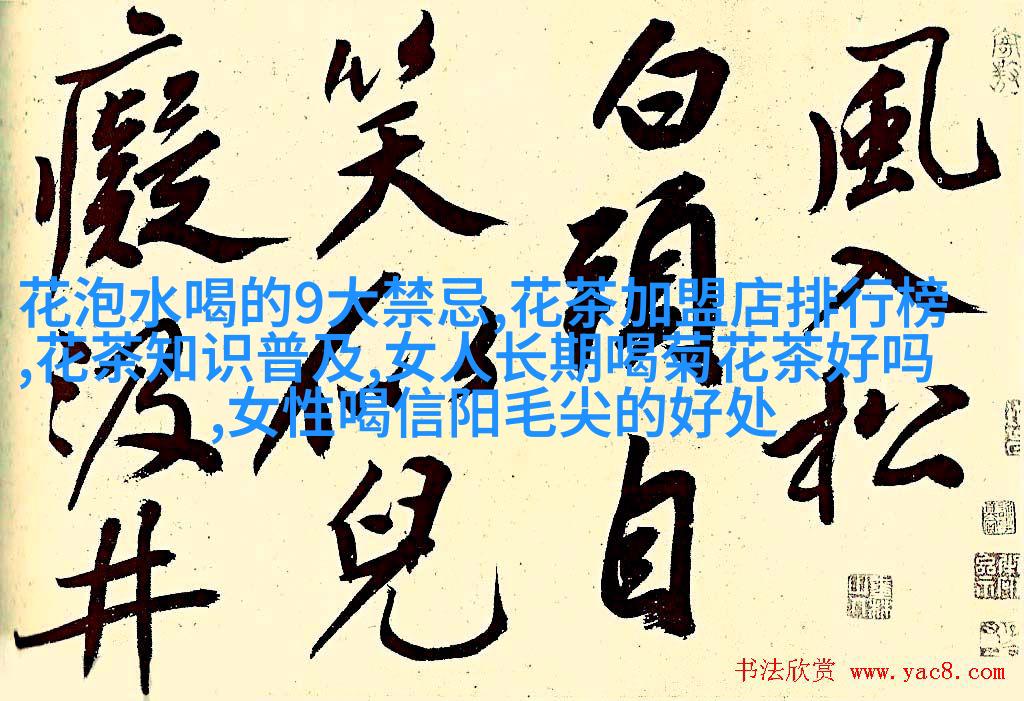 風入松
白頭自
笑兒
癡汲井
花泡水喝的9大禁忌,花茶加盟店排行榜
,花茶知识普及,女人长期喝菊花茶好吗
,女性喝信阳毛尖的好处
书法欣赏 www.yac8.com